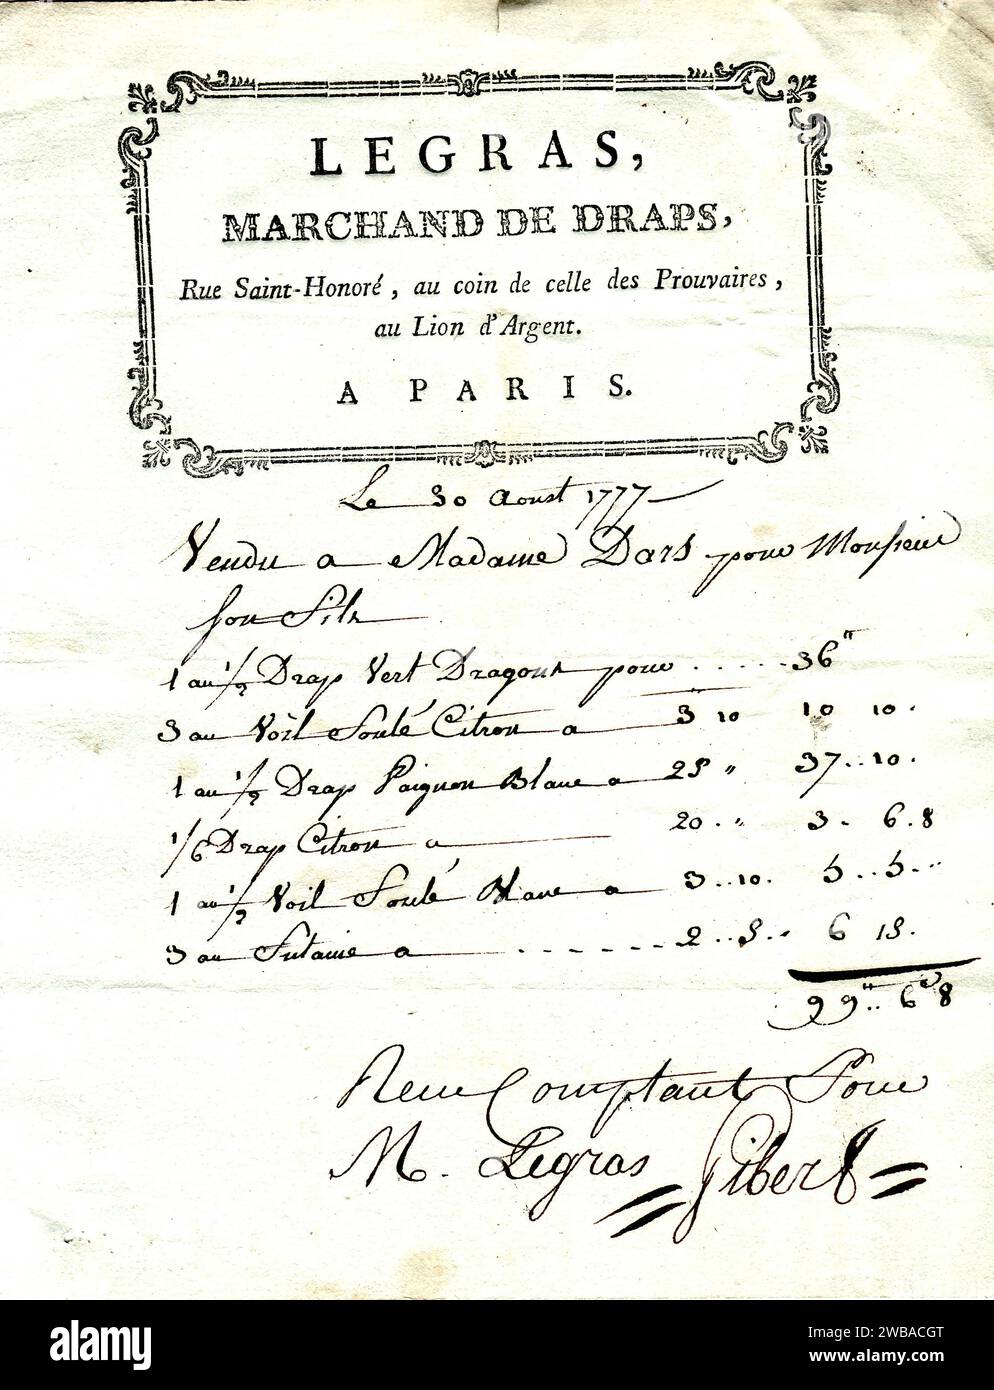 LEGRAS,
MARCHAND DE DRAPS,
Rue Saint-Honoré, au coin de celle des Prouvaires,
au Lion d'Argent.
A PARIS.
Le 30 Aoust 1777
Vendu a Madame Dars pour Monsieur
son fils
1 au 1/2 Drap Vert Dragons pour ..... 36"
3 au Voil Soulé Citron a 3 10 10 10.
1 au 1/2 Drap Paignon Blanc a 25 " 37..10.
1/6 Drap Citron a 20." 3. 6.8
1 au 1/2 Voil Soulé Blanc a 3..10. 5..5.."
3 au Futaine a ...... 2..5.. 6 15.
99".. 6s 8
Receu Comptant Pour
M. Legras Gibert
alamy
Image ID: 2WBACGT
www.alamy.com